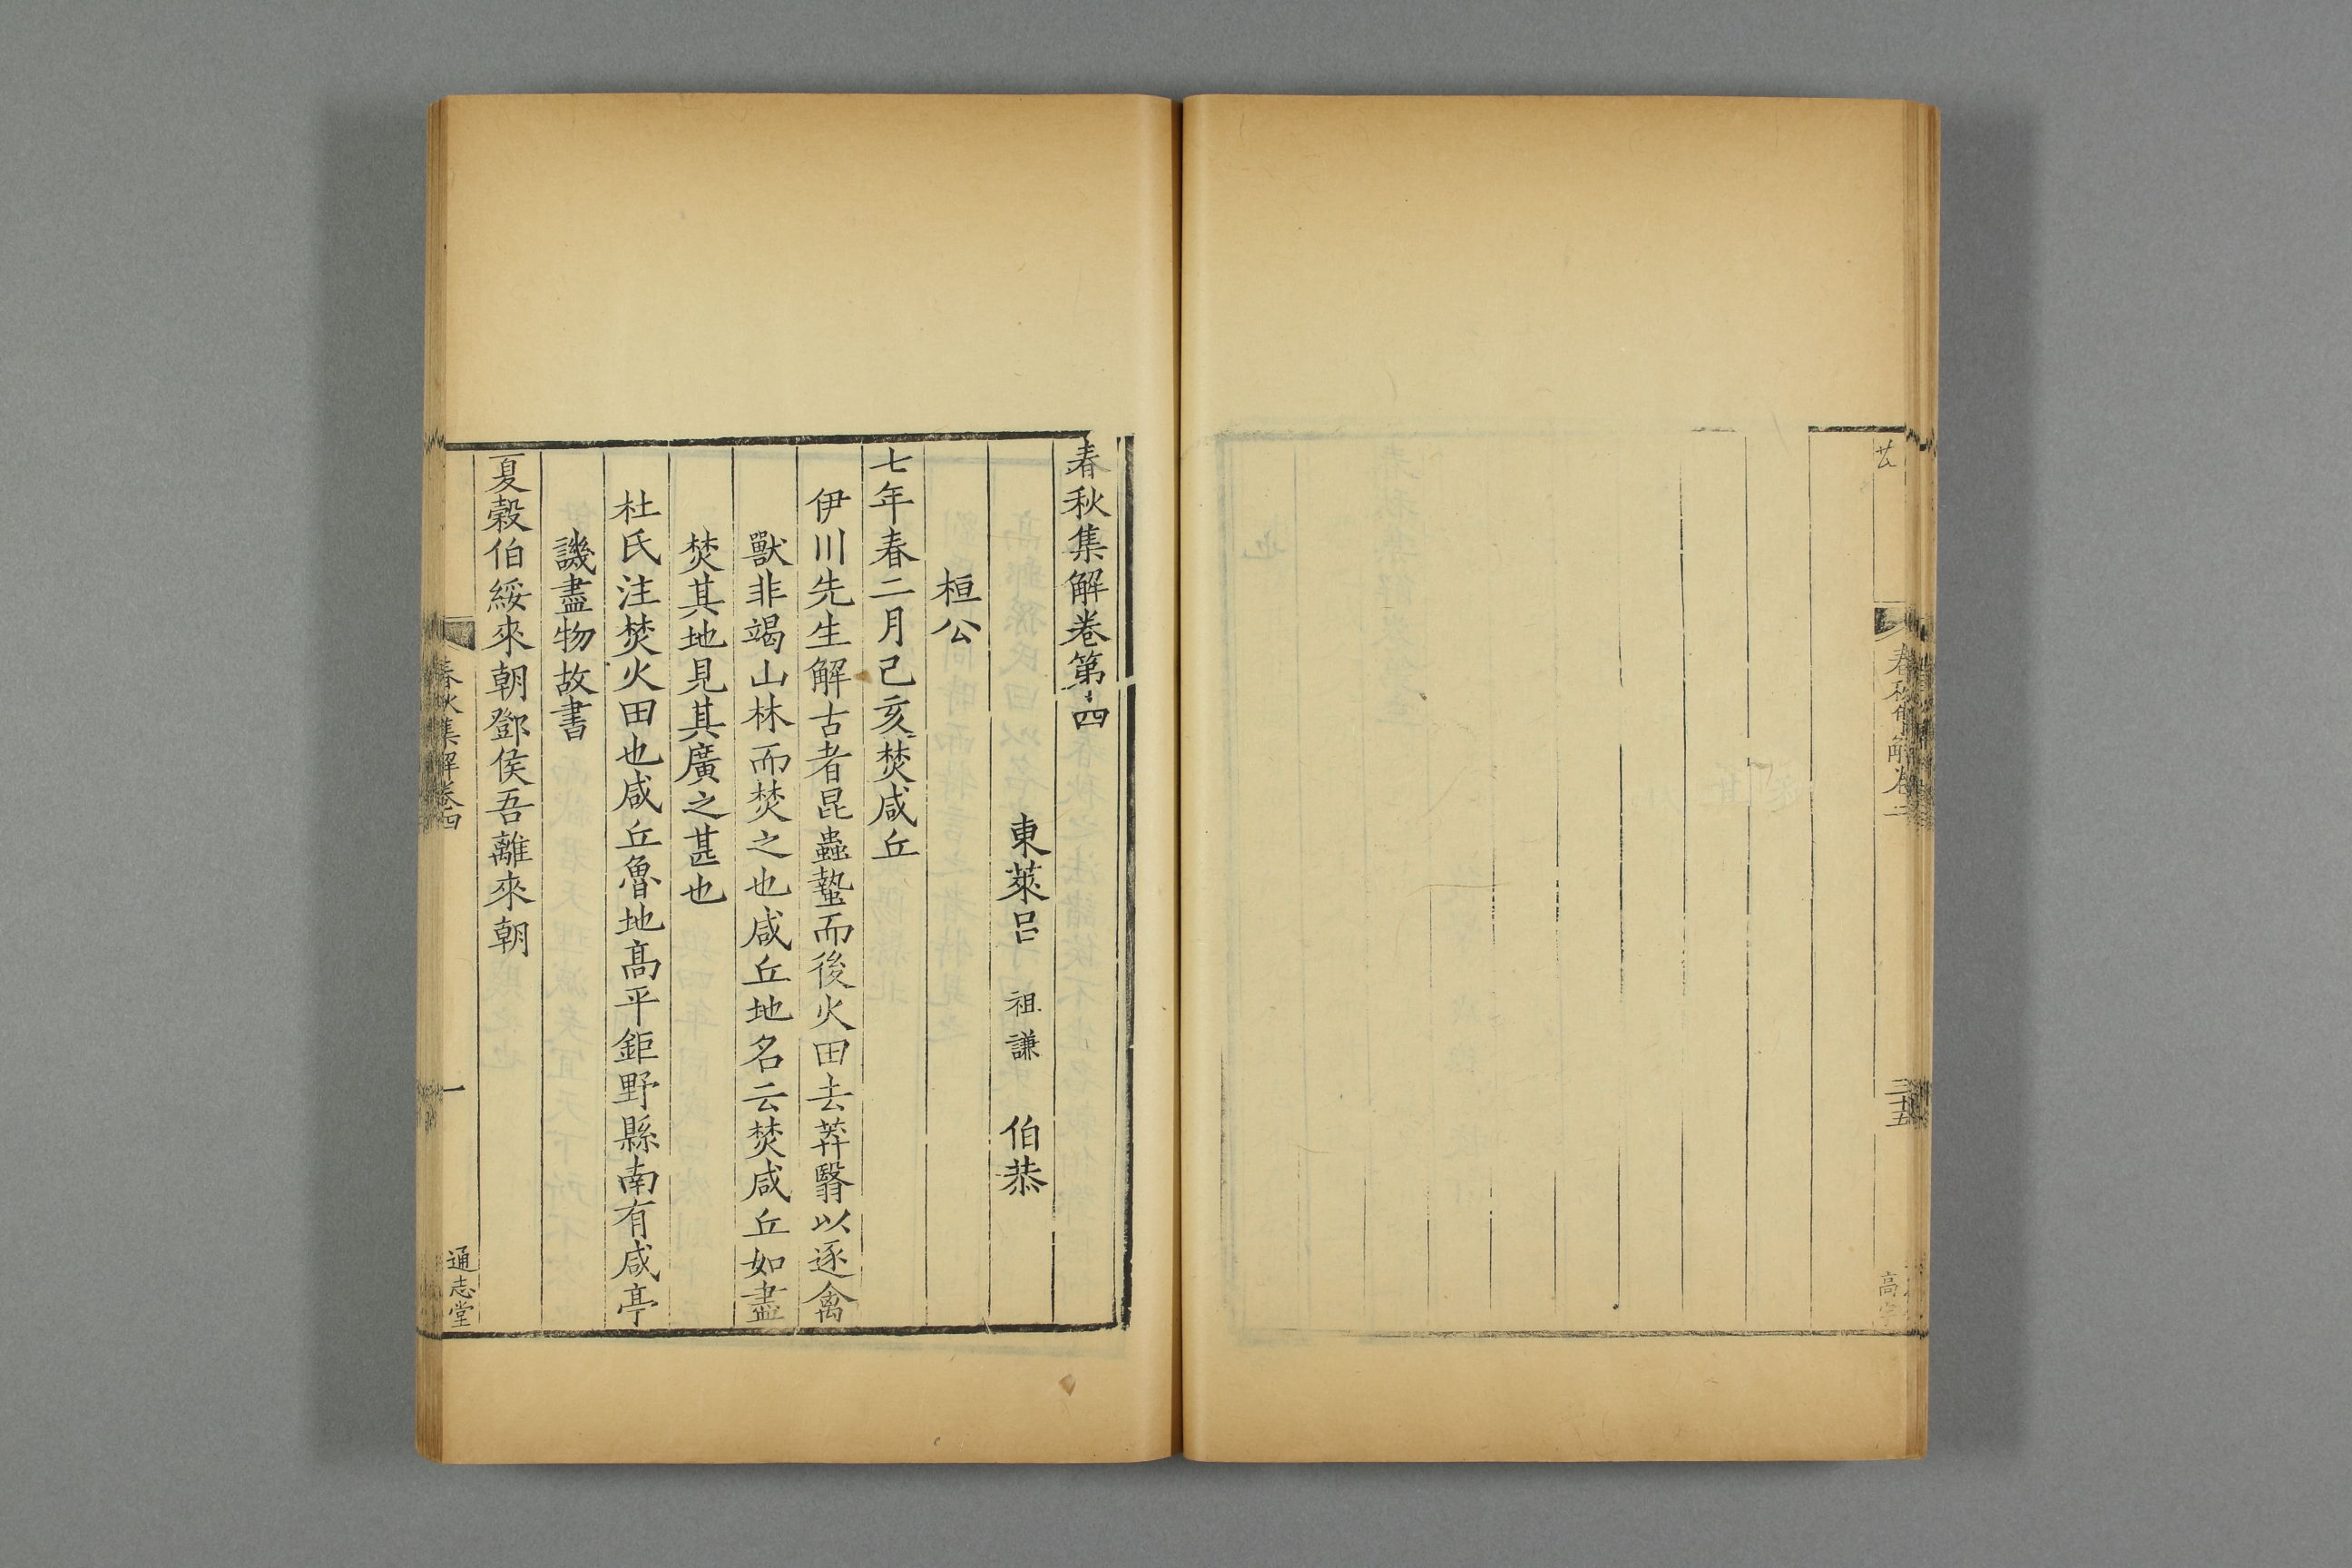 春秋集解卷第四
東萊呂 祖謙 伯恭
桓公
七年春二月己亥焚咸丘
伊川先生解古者昆蟲蟄而後火田去莽翳以逐禽
獸非竭山林而焚之也咸丘地名云焚咸丘如盡
焚其地見其廣之甚也
杜氏注焚火田也咸丘魯地髙平鉅野縣南有咸亭
譏盡物故書
夏榖伯綏來朝鄧侯吾離來朝
春秋集解卷四
一
通志堂
三十五